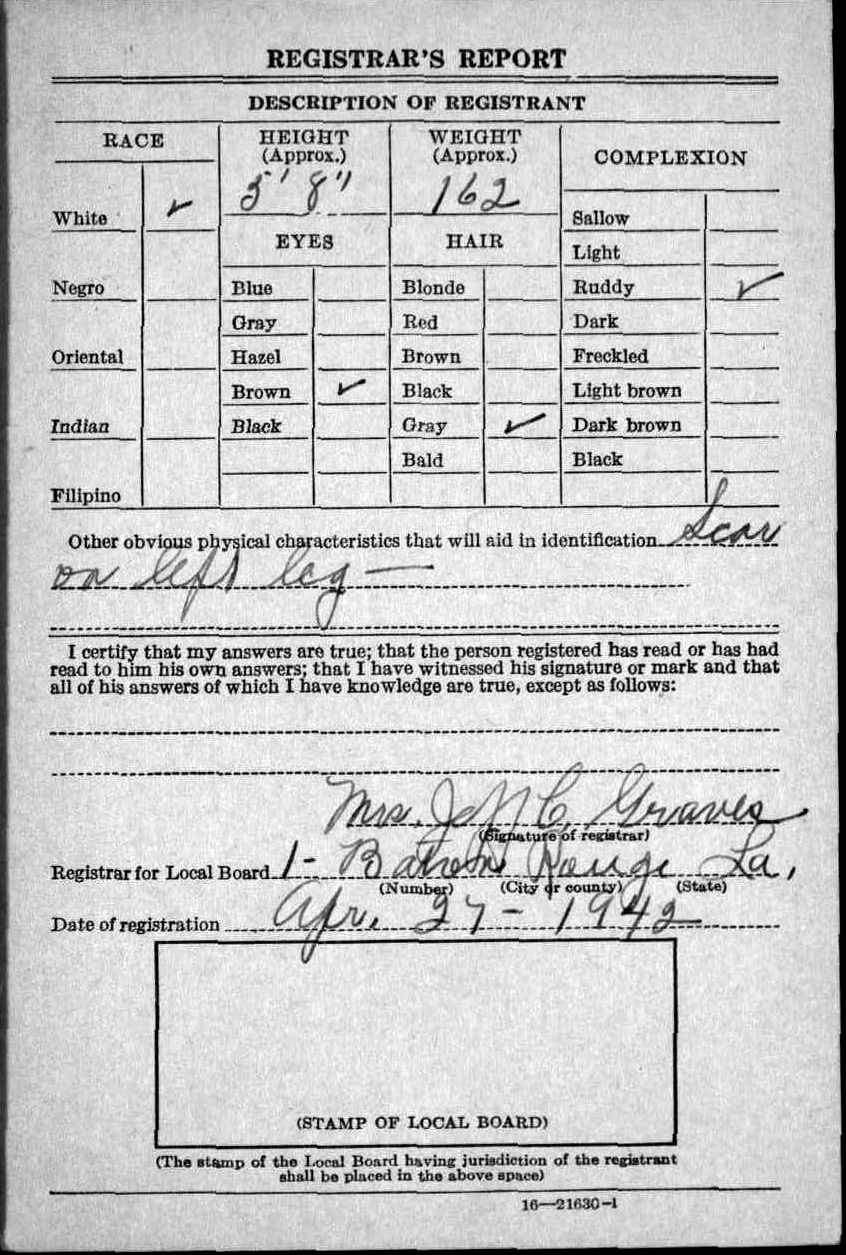 REGISTRAR'S REPORT
DESCRIPTION OF REGISTRANT
RACE
HEIGHT
(Approx.)
WEIGHT
(Approx.)
COMPLEXION
5' 8"
162
White ✓
Sallow
EYES
HAIR
Light
Negro
Blue
Blonde
Ruddy ✓
Gray
Red
Dark
Oriental
Hazel
Brown
Freckled
Brown ✓
Black
Light brown
Indian
Black
Gray ✓
Dark brown
Bald
Black
Filipino
Other obvious physical characteristics that will aid in identification Scar
on left leg —
I certify that my answers are true; that the person registered has read or has had
read to him his own answers; that I have witnessed his signature or mark and that
all of his answers of which I have knowledge are true, except as follows:
Mrs. Graves
(Signature of registrar)
Registrar for Local Board 1- Baton Rouge La,
(Number) (City or county) (State)
Date of registration Apr. 27 - 1942
(STAMP OF LOCAL BOARD)
(The stamp of the Local Board having jurisdiction of the registrant
shall be placed in the above space)
16—21630-1